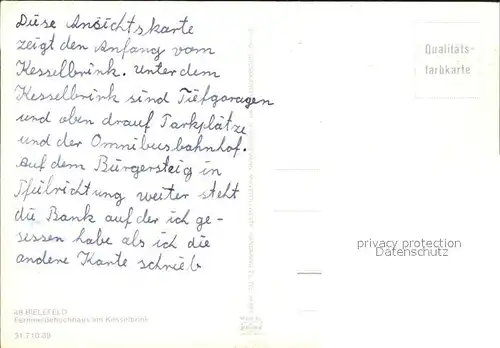 Diese Ansichtskarte
zeigt den Anfang vom
Kesselbrink. Unter dem
Kesselbrink sind Tiefgaragen
und oben drauf Parkplätze
und der Omnibusbahnhof.
Auf dem Bürgersteig in
Pfeilrichtung weiter steht
die Bank auf der ich ge-
sessen habe als ich die
andere Karte schrieb
48 BIELEFELD
Fernmeldehochhaus am Kesselbrink
Qualitäts-
farbkarte
privacy protection
Datenschutz